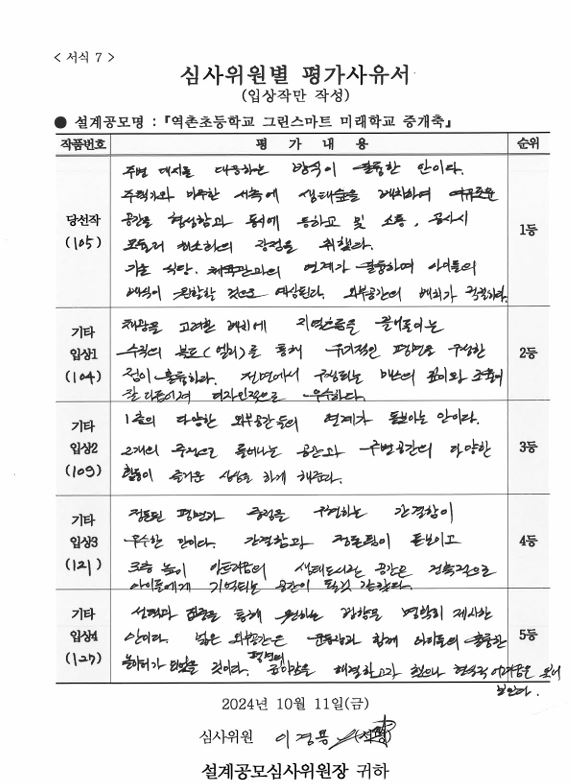 < 서식 7 >
심사위원별 평가사유서
(입상작만 작성)
● 설계공모명 : 『역촌초등학교 그린스마트 미래학교 증개축』
작품번호 평 가 내 용 순위
당선작
(105)
주변 대지를 대응하는 방식이 훌륭한 안이다.
주택가와 서측에 생태숲을 배치하여
공간을 형성함과 동시에 등하교 및 소통, 공사시
최소화의 강점을 취했다.
기존 식당, 체육관과의 연계가 훌륭하며 아이들의
배식이 원활할 것으로 예상된다. 외부공간의 배치가 적절하다.
1등
기타
입상1
(104)
채광을 고려한 배치에 끌어들이는
수직의 복도(열리)로 통해 평면을 구성한
점이 훌륭하다. 전면에서 구성되는 매스의 깊이와
잘 다듬어져 디자인적으로 우수하다.
2등
기타
입상2
(109)
1층의 다양한 외부공간들의 연계가 돋보이는 안이다.
2개의 중정으로 공간과 주변공간의 다양한
활동이 즐거운 상상을 하게 해준다.
3등
기타
입상3
(121)
정돈된 평면과 중정을 간결함이
우수한 안이다. 간결함과 정돈됨이 돋보이고
생태도서관 공간은 건축적으로
아이들에게 기억되는 공간이 될것 같았다.
4등
기타
입상4
(127)
통해 원하는 방향을 명확히 제시한
안이다. 넓은 외부공간은 운동장과 함께 아이들의 훌륭한
놀이터가 되었을 것이다. 평면의 해결하고자 했으나 현실적 어려움은 보여
보인다.
5등
2024년 10월 11일(금)
심사위원 이경용
설계공모심사위원장 귀하